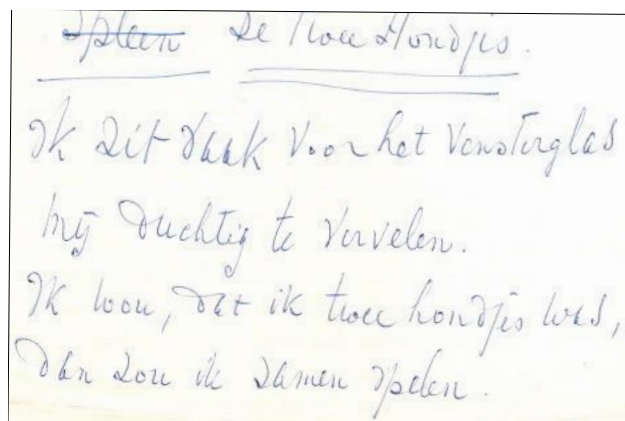 Spleen De twee Hondjes.
Ik zit vaak voor het vensterglas
mij duchtig te vervelen.
Ik wou, dat ik twee hondjes was,
dan zou ik samen spelen.